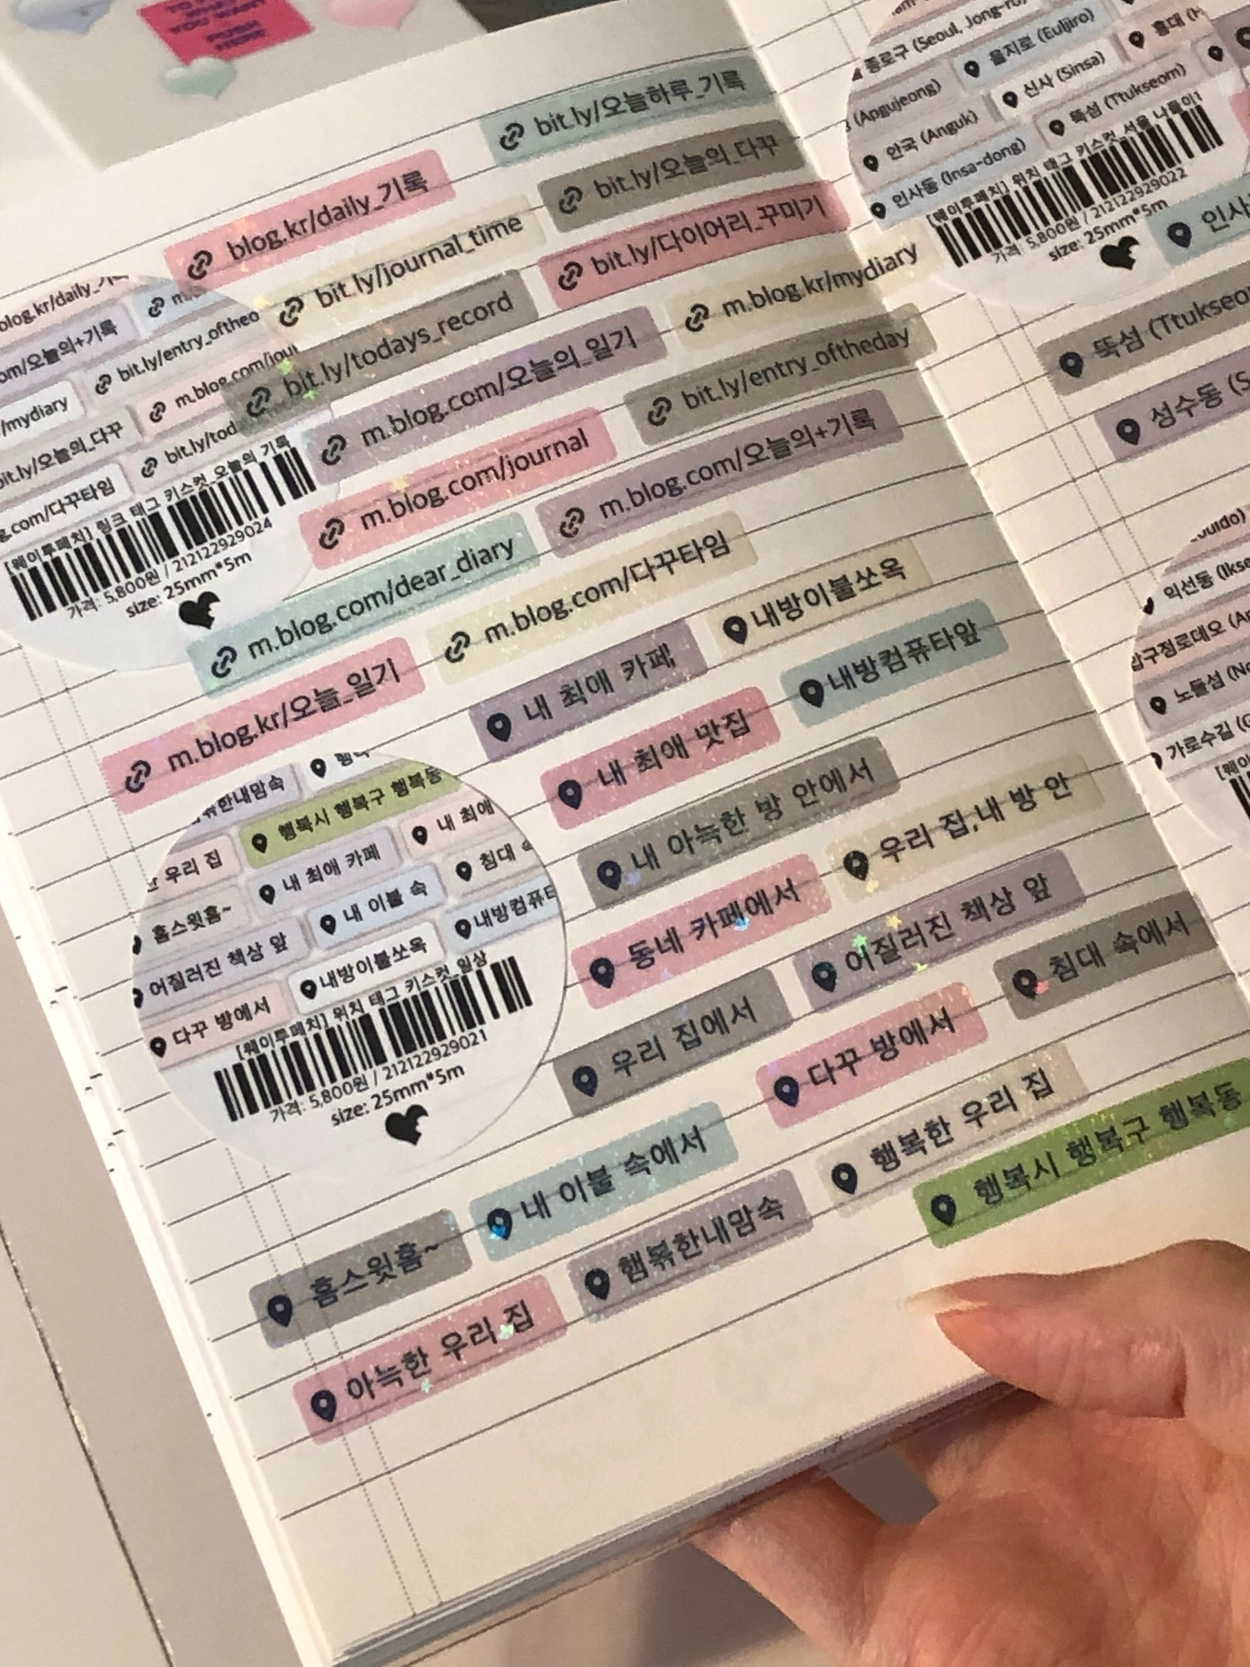 PUSH
HERE
bit.ly/오늘하루_기록
bit.ly/오늘의_다꾸
blog.kr/daily_기록
bit.ly/journal_time
bit.ly/다이어리_꾸미기
bit.ly/todays_record
m.blog.kr/mydiary
m.blog.com/오늘의_일기
bit.ly/entry_oftheday
m.blog.com/journal
m.blog.com/오늘의+기록
m.blog.com/dear_diary
m.blog.com/다꾸타임
m.blog.kr/오늘_일기
내 최애 카페
내방이불쏘옥
내 최애 맛집
내방컴퓨타앞
내 아늑한 방 안에서
우리 집,내 방 안
동네 카페에서
어질러진 책상 앞
침대 속에서
우리 집에서
다꾸 방에서
내 이불 속에서
행복한 우리 집
행복시 행복구 행복동
홈스윗홈~
햄볶한내맘속
아늑한 우리 집
/mydiary
bit.ly/entry_oftheo
bit.ly/오늘의_다꾸
[웨이투페치] 링크 태그 키스컷_오늘의 기록
가격: 5,800원 / 212122929024
size: 25mm*5m
행복시 행복구 행복동
우리 집
내 최애 카페
내 최애
홈스윗홈~
내 이불 속
침대
어질러진 책상 앞
내방이불쏘옥
내방컴퓨터
다꾸 방에서
[웨이투페치] 위치 태그 키스컷_일상
가격: 5,800원 / 212122929021
size: 25mm*5m
종로구 (Seoul, Jong-ro)
을지로 (Euljiro)
홍대
(Apgujeong)
신사 (Sinsa)
안국 (Anguk)
뚝섬 (Ttukseom)
인사동 (Insa-dong)
[웨이투페치] 위치 태그 키스컷_서울 나들이1
가격: 5,800원 / 212122929022
size: 25mm*5m
인사
뚝섬 (Ttukseo
성수동 (S
익선동 (Ikse
압구정로데오
노들섬
가로수길